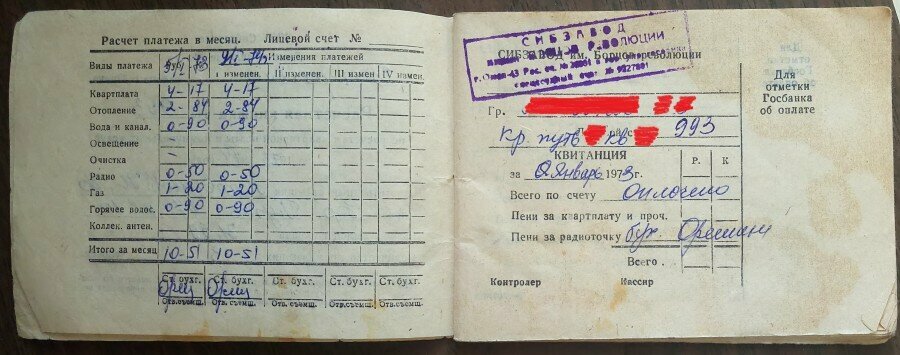 Расчет платежа в месяц. Лицевой счет №
Виды платежа
Изменения платежей
I изменен. II изменен. III измен IV измен.
Квартплата 4-17 4-17
Отопление 2-84 2-84
Вода и канал. 0-90 0-90
Освещение
Очистка
Радио 0-50 0-50
Газ 1-20 1-20
Горячее водос. 0-90 0-90
Коллек. антен.
Итого за месяц 10-51 10-51
Ст. бухг. Ст. бухг. Ст. бухг. Ст. бухг. Ст. бухг.
Отв.съемщ. Отв.съемщ. Отв.съемщ. Отв.съемщ. Отв.съемщ.
СИБЗАВОД
СИБЗАВОД им. Борцов революции
Гр.
Кр. путь кв 993
КВИТАНЦИЯ Р. К
за Январь 1973г.
Всего по счету оплочено
Пени за квартплату и проч.
Пени за радиоточку бух.
Всего
Контролер Кассир
Для
отметки
Госбанка
об оплате